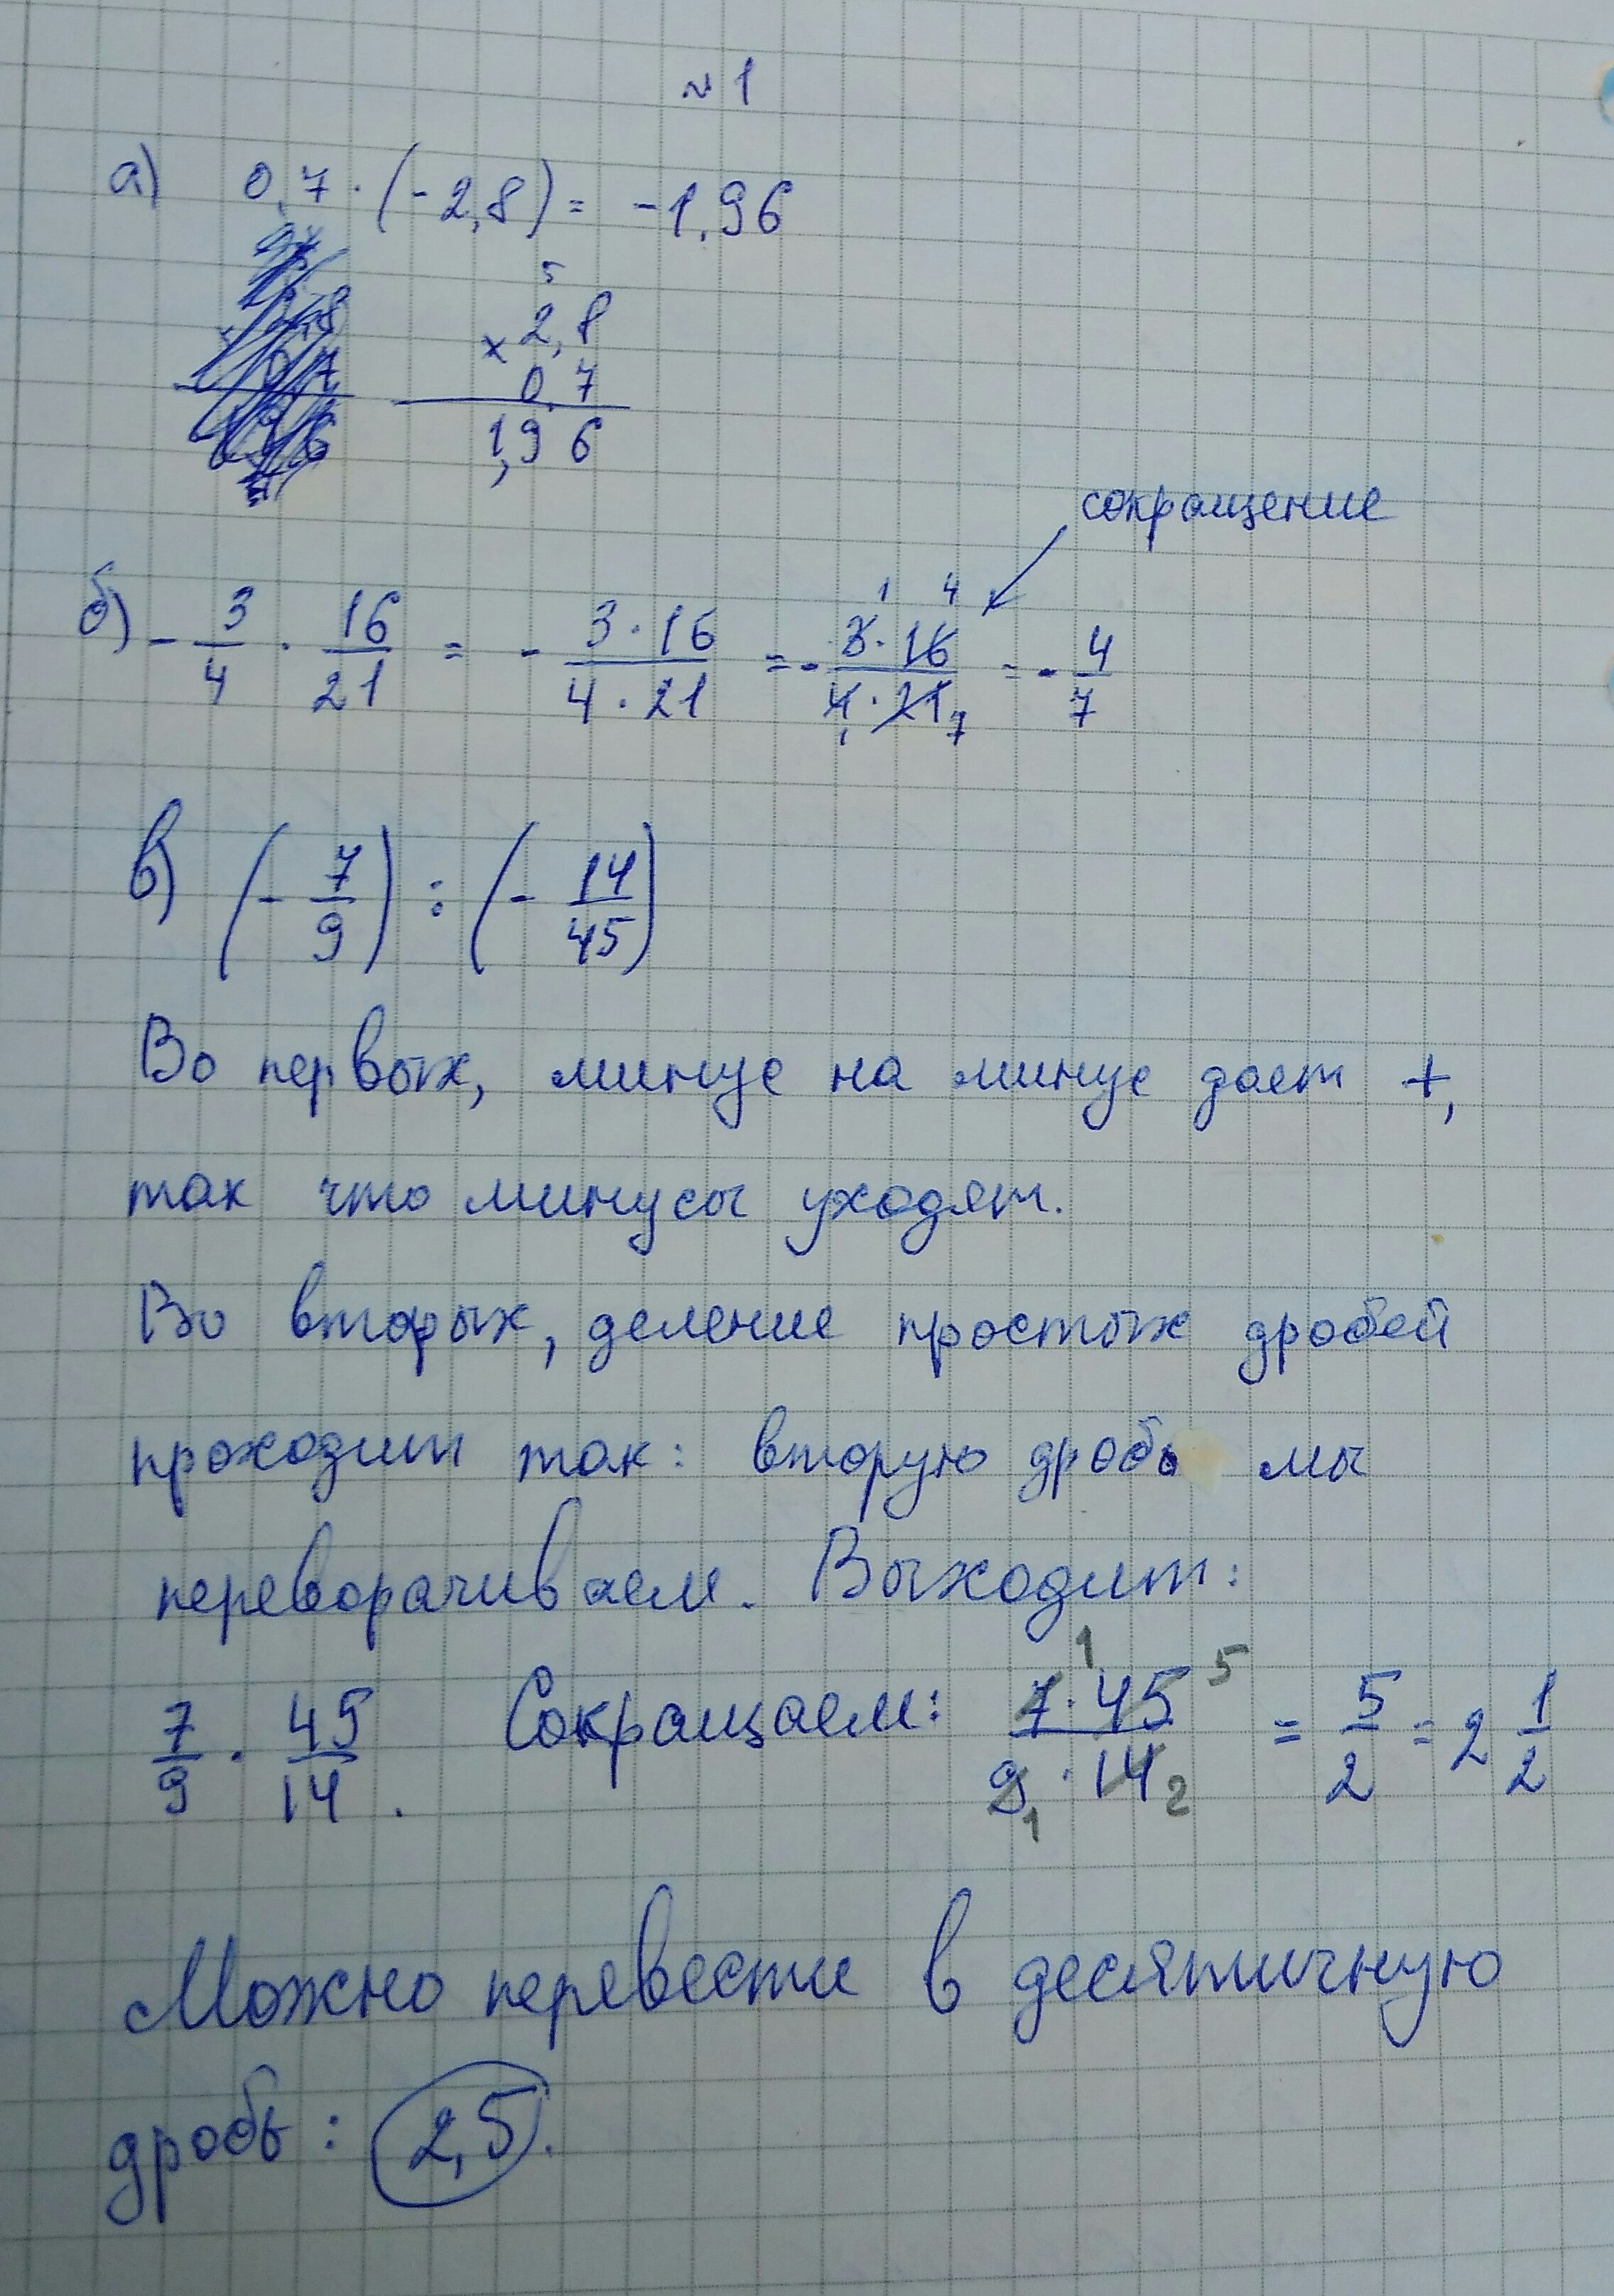 №1
а) 0,7 · (-2,8) = -1,96
5
× 2,8
0,7
1,96
сокращение
б) - 3/4 · 16/21 = - 3·16/4·21 = - 3·16/4·21 = - 4/7
1 4
1 7
в) (- 7/9) : (- 14/45)
Во первых, минус на минус дает +,
так что минусы уходят.
Во вторых, деление простых дробей
проходит так: вторую дробь мы
переворачиваем. Выходит:
7/9 · 45/14. Сокращаем: 7·45/9·14 = 5/2 = 2 1/2
1 5
1 2
Можно перевести в десятичную
дробь: 2,5.